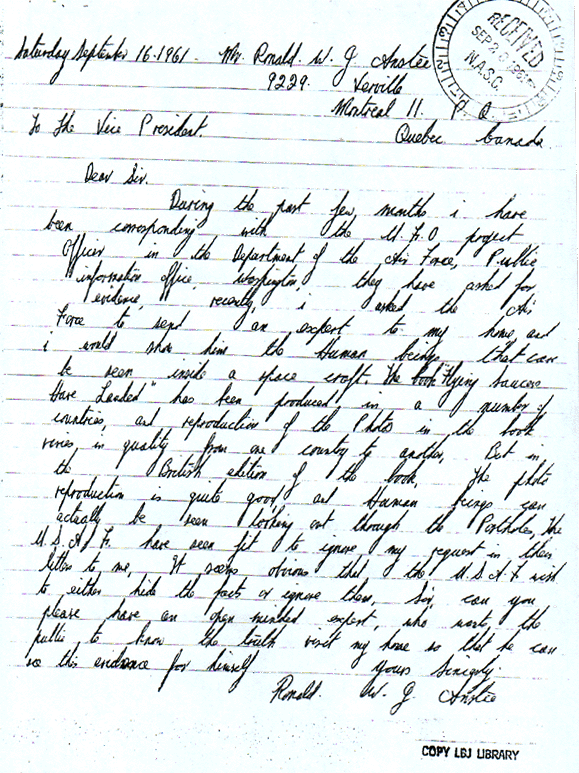 Saturday September 16. 1961. Mr. Ronald. W. J Anstee
9229. Verville
Montreal 11. P Q
To The Vice President.
Quebec Canada.
RECEIVED
SEP 20 1961
N.A.S.C.
Dear Sir.
During the past few months i have
been corresponding with the U.F.O project
Officer in the Department of the Air Force, Public
information office, Washington, they have asked for
evidence, recently, i asked the Air
Force to send an expert to my home, and
i would show him the Human beings that can
be seen inside a space craft. The book "Flying saucers
Have Landed" has been produced in a number of
countries, and reproduction of the Photos in the book
varies in quality from one country to another, But in,
the British edition of the book, The photo
reproduction is quite good, and Human Beings can
actually be seen looking out though the Portholes, The
U.S.A.F. have seen fit to ignore my request in their
letters to me, It seems obvious that the U.S.A.F wish
to either hide the facts or ignore them, Sir, can you
please have an open minded expert, who wants the
public to know the truth visit my home so that he can
see this evidence for himself
yours Sincerely
Ronald. W. J. Anstee
COPY LBJ LIBRARY